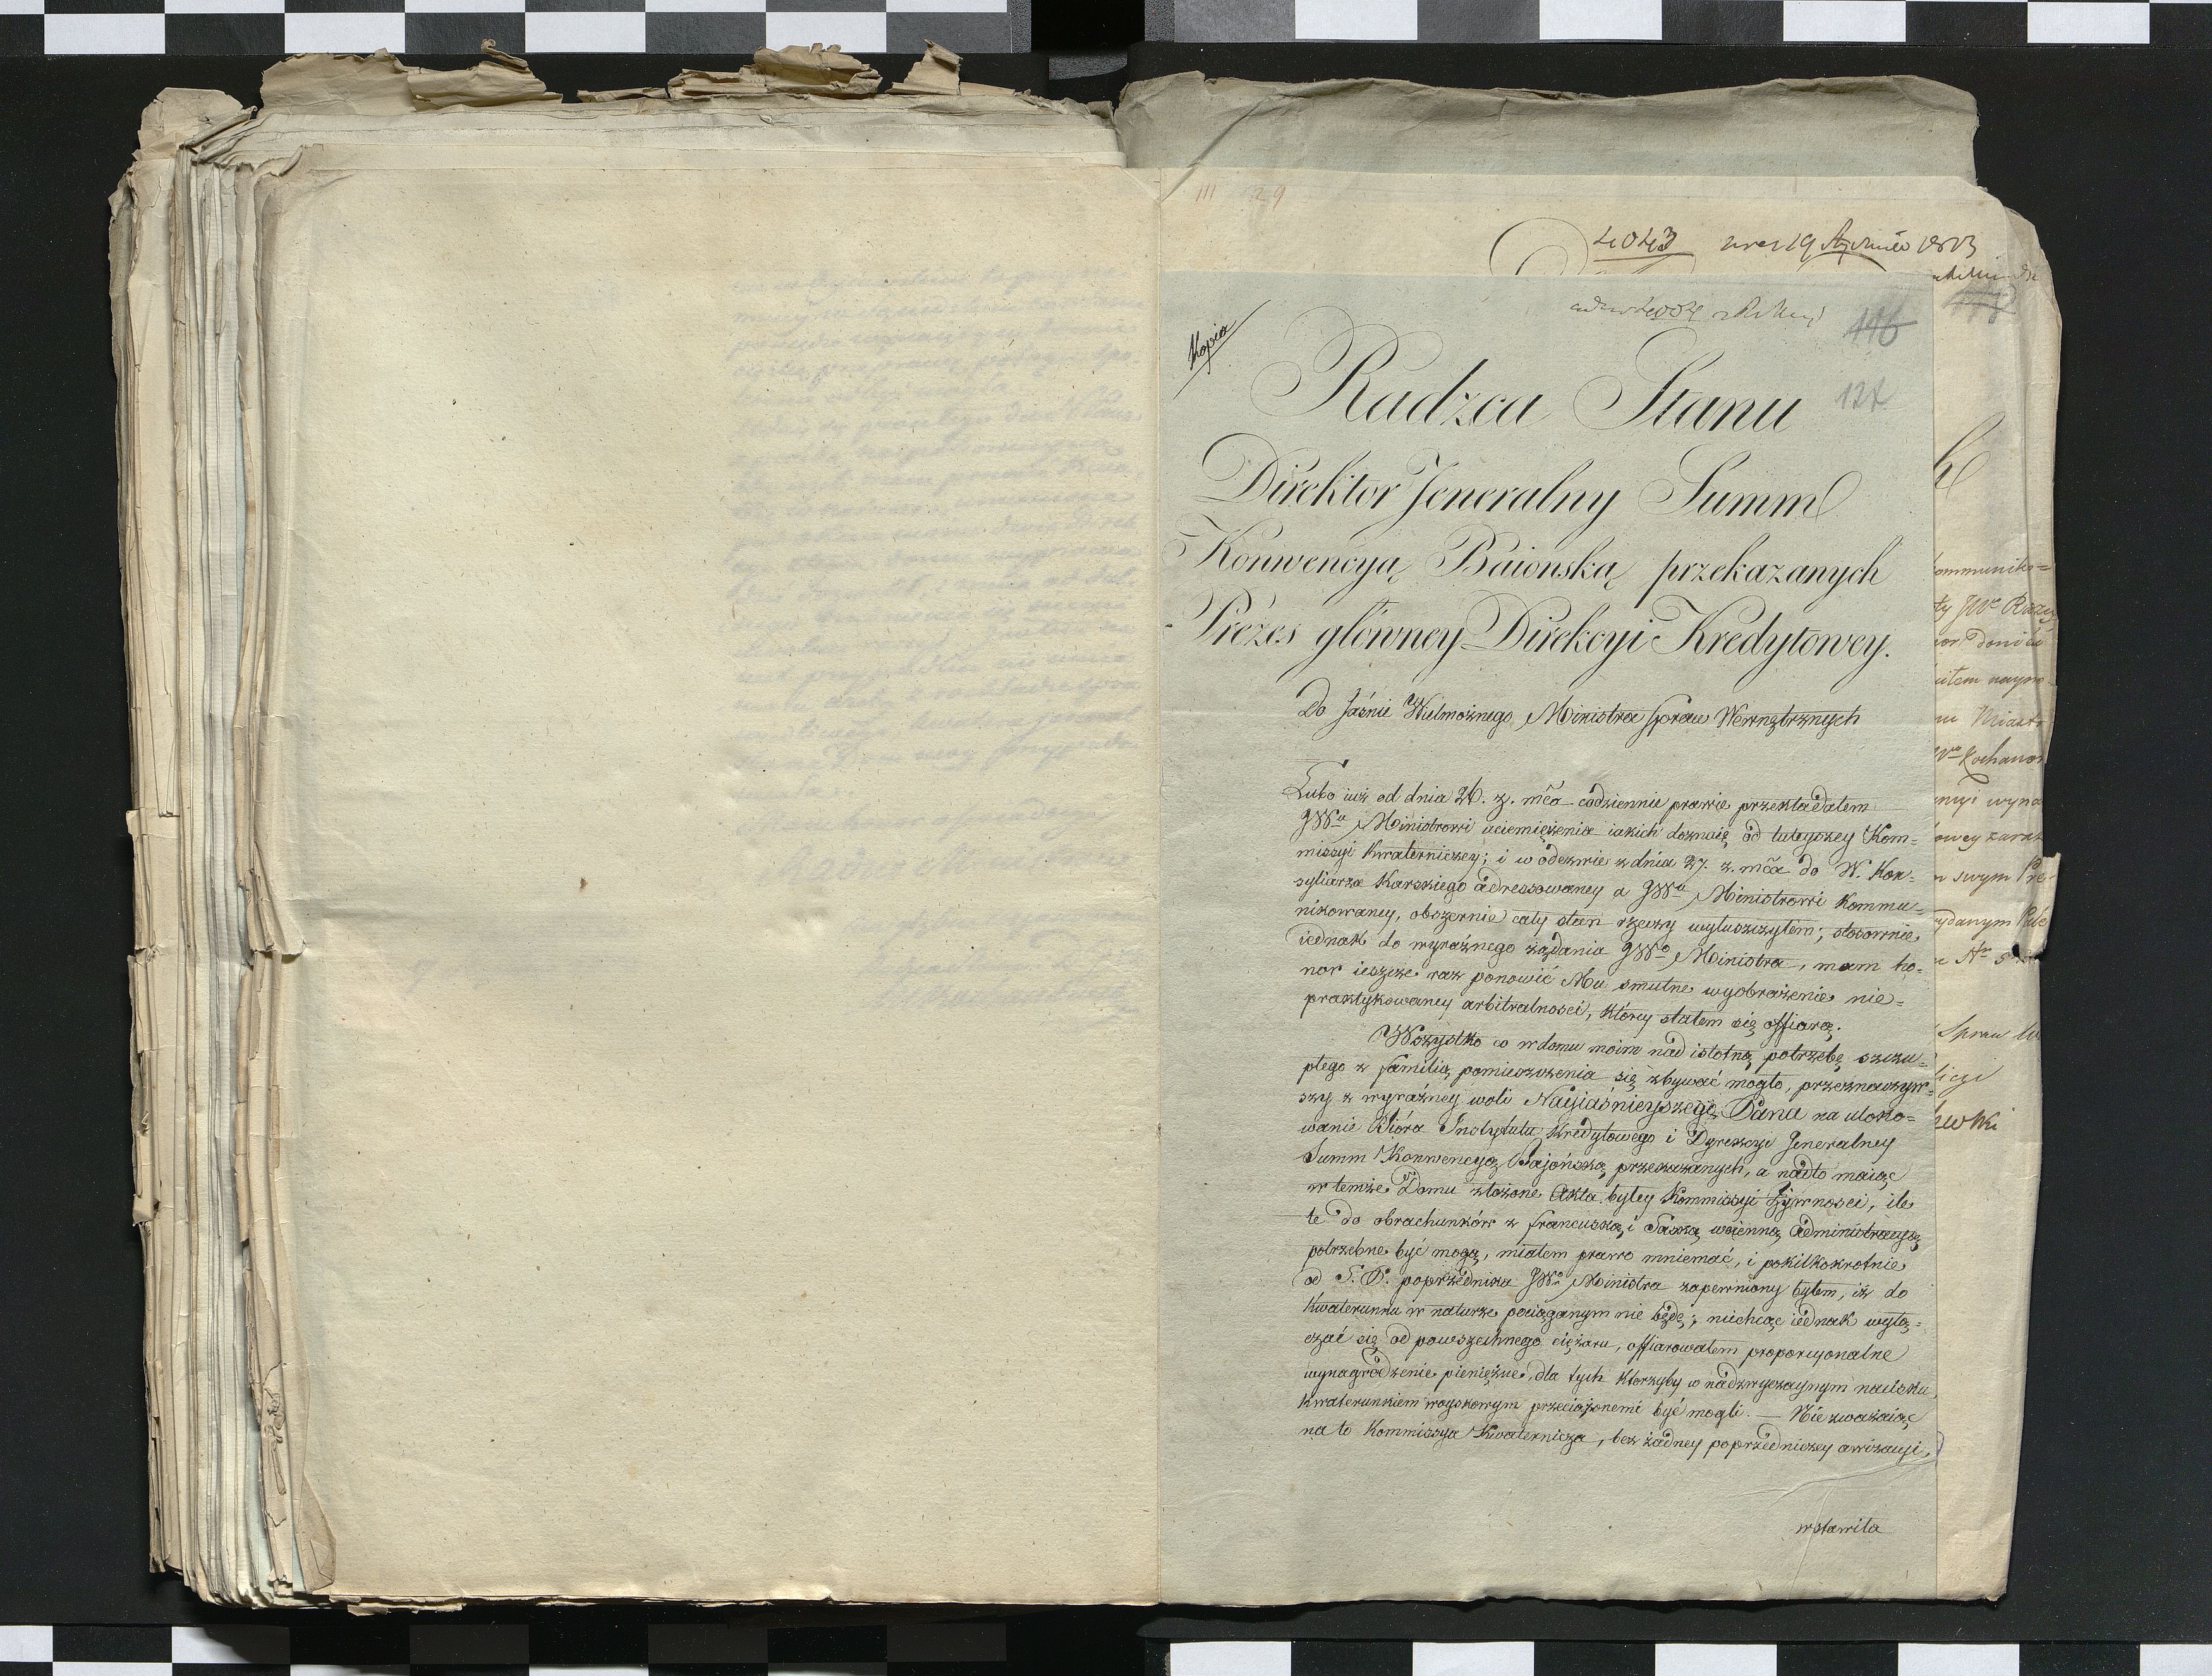 III 29
4043 19 Stycznia 1813
Kopia
116
127
Radzca Stanu
Direktor Jeneralny Summ
Konwencyą Baionską przekazanych
Prezes główney Direkcyi Kredytowey.
Do Jaśnie Wielmożnego Ministra Spraw Wewnętrznych
Lubo iuż od dnia 26. z. mca codziennie prawie przekładałem
JWu Ministrowi uciemiężenia iakich doznaię od tuteyszey Kom=
missyi Kwaterniczey; i w odezwie z dnia 27. z. mca do W. Kon=
syliarza Karskiego adressowaney a JWu Ministrowi kommu=
nikowaney, obszernie cały stan rzeczy wyłuszczyłem; stosownie
iednak do wyraźnego żądania JWo Ministra, mam ho=
nor ieszcze raz ponowić Mu smutne wyobrażenie nie=
praktykowaney arbitralności, którey stałem się offiarą.
Wszystko co w domu moim nad istotną potrzebę szczu=
płego z familią pomieszczenia się zbywać mogło, przeznaczyw=
szy z wyraźney woli Nayiaśnieyszego Pana na uloko=
wanie Bióra Instytutu Kredytowego i Dyrekcyi Jeneralney
Summ Konwencyą Bajońską przekazanych, a nadto maiąc
w temże Domu złożone Akta byłey Kommissyi Żywności, ile
te do obrachunków z francuską i Saską woienną Administracyą
potrzebne być mogą, miałem prawo mniemać, i pokilkokrotnie
od Ś. P. poprzednika JWo Ministra zapewniony byłem, iż do
Kwaterunku w naturze pociąganym nie będę; niechcąc iednak wyłą=
czać się od powszechnego ciężaru, offiarowałem proporcyonalne
wynagrodzenie pieniężne, dla tych którzyby w nadzwyczaynym nacisku
Kwaterunkiem woyskowym przeciążonemi być mogli. — Nie zważaiąc
na to Kommissya Kwaternicza, bez żadney poprzedniczey awizacyi,
wstawiła
ommuniko=
ty JWo Raczy
or donieść
item
Miasta
Kochanow
wyna
owey zaraz
swym Pre
ydanym Pale
Nr 5
Spraw W
licyi
ewski